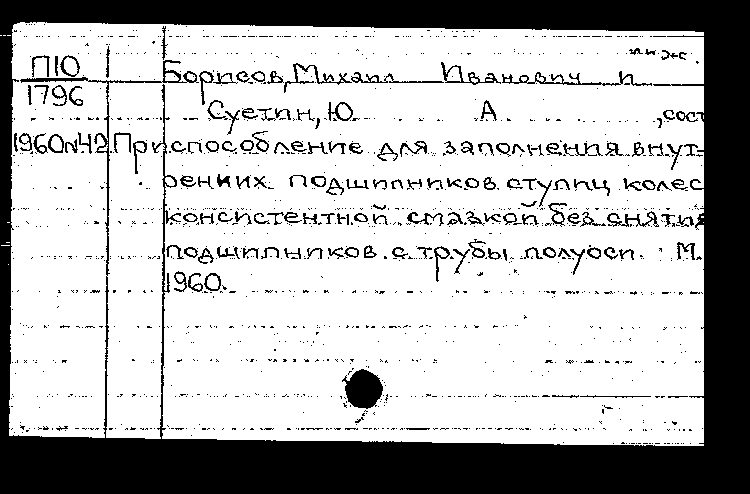 инж.
П10 Борисов, Михаил Иванович и
1796
Суетин, Ю. А. , сост
1960 №42 Приспособление для заполнения внут-
ренних подшипников ступиц колес
консистентной смазкой без снятия
подшипников с трубы полуоси. М.
1960.